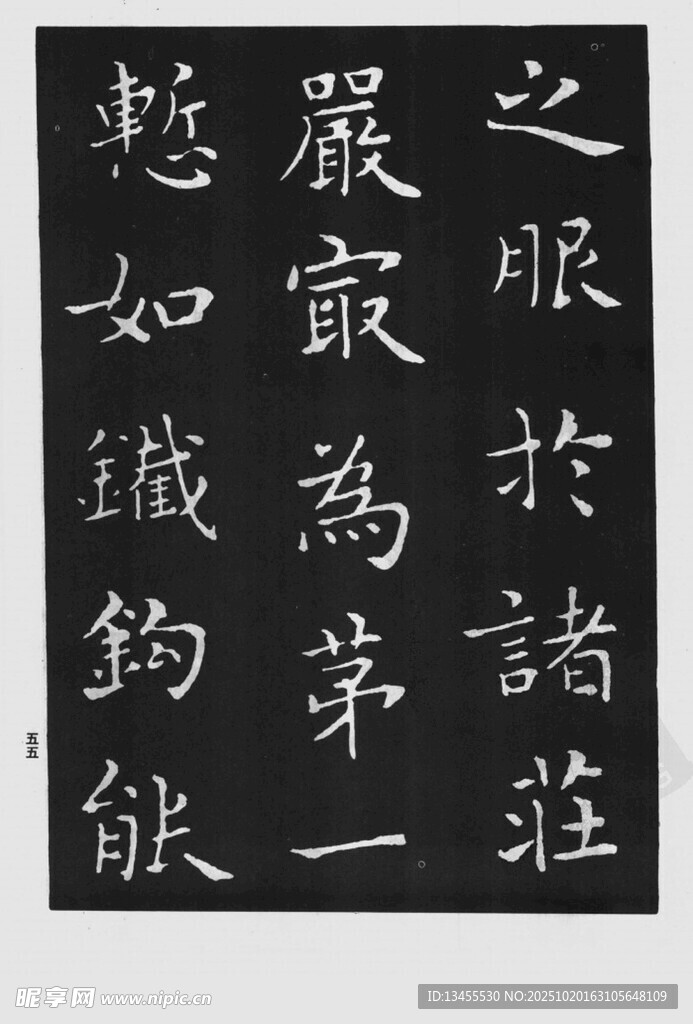 之服於諸莊
嚴㝡為苐一
慙如鐵鉤能
五五
昵享网 www.nipic.cn
ID:13455530 NO:20251020163105648109